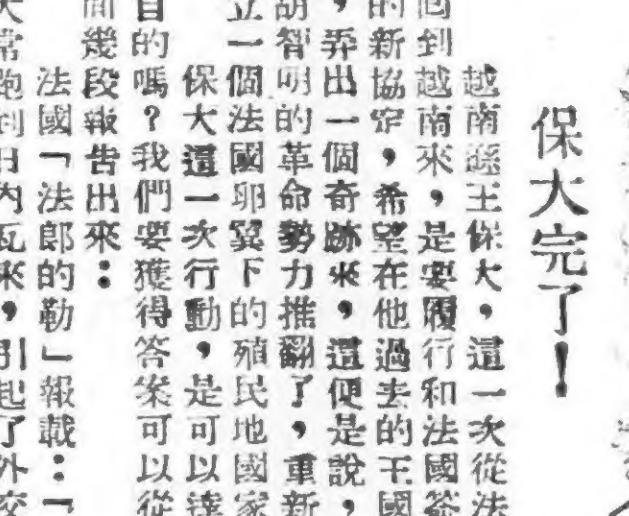 保大完了！
越南遜王保大，這一次從法
囘到越南來，是要履行和法國簽
的新協定，希望在他過去的王國
，弄出一個奇跡來，這便是說，
胡智明的革命勢力推翻了，重新
立一個法國卵翼下的殖民地國家
保大這一次行動，是可以達
目的嗎？我們要獲得答案可以從
面幾段報告出來：
法國「法郎的勒」報載：「
常跑到日內瓦來，引起了外交